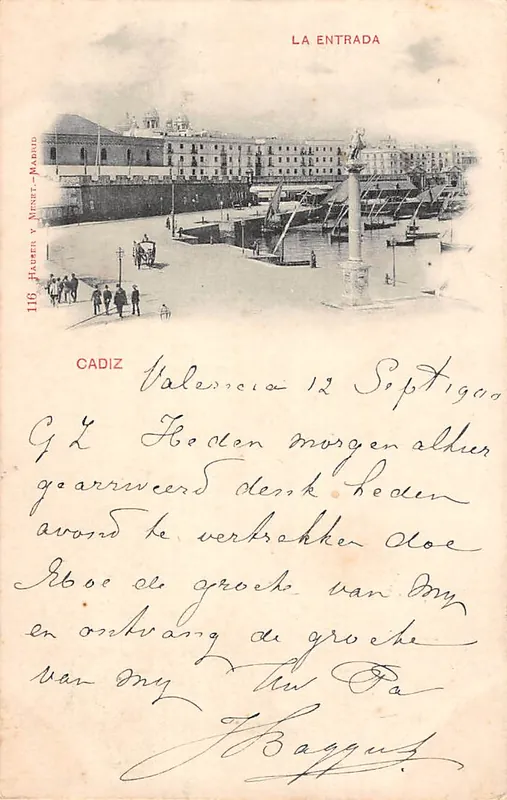 LA ENTRADA
116 HAUSER Y MENET.-MADRID
CADIZ
Valencia 12 Sept 1900
G Z Heden morgen alhier
gearriveerd denk heden
avond te vertrekken doe
Moe de groete van My
en ontvang de groete
van My Uw Pa